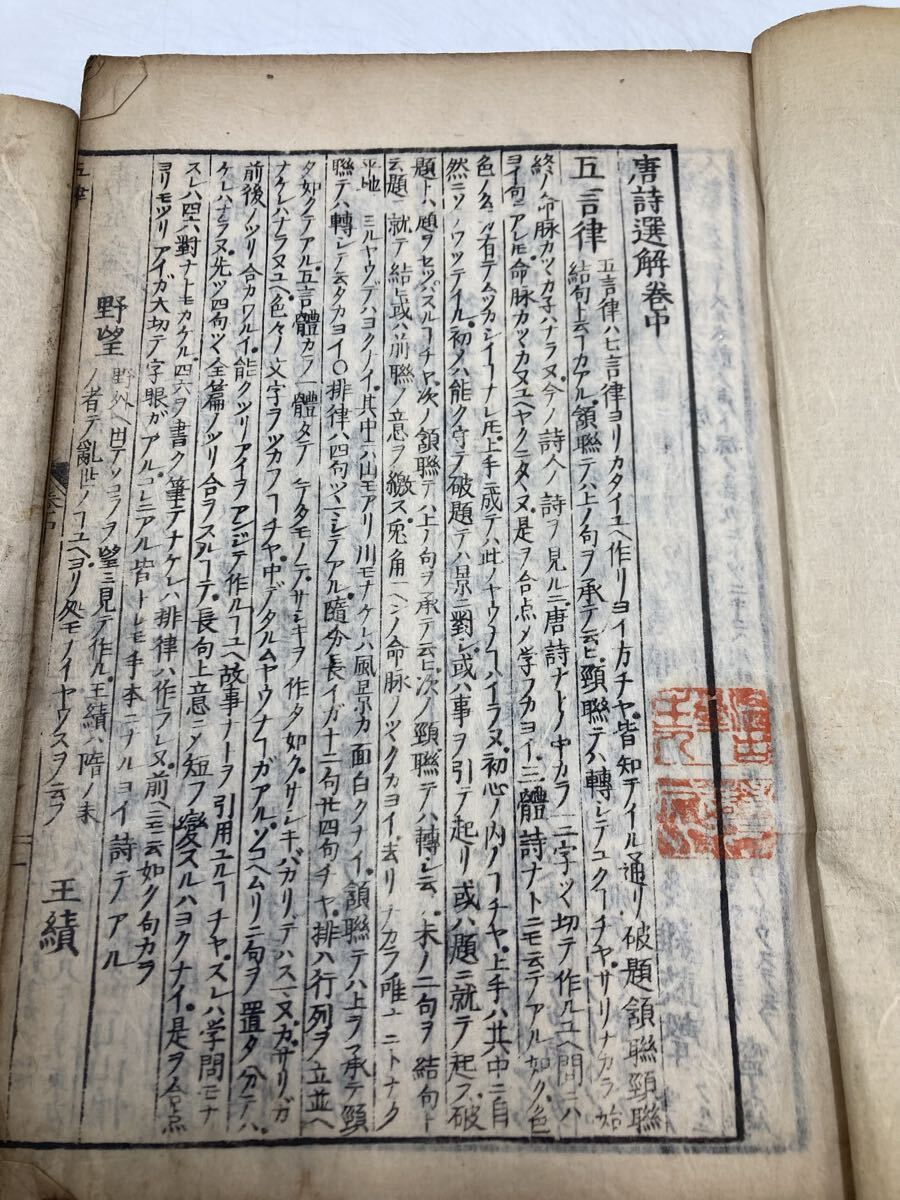 唐詩選解卷中
五言律 五言律ハ七言律ヨリカタイユヘ作リヨイ方チヤ皆知テイル通リ破題頷聯頸聯
結句ト云フカアル頷聯テハ上ノ句ヲ承テ云ヒ頸聯テハ轉シテユクヿチヤサリナカラ始
終ノ命脉カツマカ子ハナラヌ今ノ詩人ノ詩ヲ見ルニ唐詩ナトノ中カラ二字ツヽ切テ作ルユヘ間ニハ
ヨイ句ニアレ𪜈命脉カツマカヌユヘヤクニタヽヌ是ヲ合点メ学フカヨイ三體詩ナトニモ云テアル如ク色
色ノ名カ有テムツカシイヿナレ𪜈上手ニ成テハ此ノヤウナヿハイラヌ初心ノ内ノヿチヤ上手ハ其中ニ自
然ニソノウツテイル初ノハ能ク守テ破題テハ景ニ對シ或ハ事ヲ引テ起リ或ハ題ニ就テ起ス破
題トハ題ヲセツパスルヿチヤ次ノ頷聯テハ上ノ句ヲ承テ云ヒ次ノ頸聯テハ轉シ云末ノ二句ヲ結句ト
云題ニ就テ結ヒ或ハ前聯ノ意ヲ繳ス兎角一ヘンノ命脉ノツヾクカヨイ去リナカラ唯一ニトナク
平地ミルヤウデハヨクナイ其中ニハ山モアリ川モナケレハ風景カ面白クナイ頷聯テハ上ヲ承テ頸
聯テハ轉シテ云タカヨイ〇排律ハ四句ツヽミシテアル隨分長イガ十二句廿四句チヤ排ハ行列ヲ立並ヘ
タ如クテアル五言體カラノ一體タテヽタモノデサシキヲ作タ如クサシキバカリデハスヌカサリガ
ナケレハナラヌユヘ色々ノ文字ヲツカフヿチヤ中デタルムヤウナヿガアルソコヘムリニ句ヲ置タ分テハ
前後ノツリ合カワルイ能クツリアイヲアンジテ作ルヿユヘ故事ナトヲ引用ユルヿチヤスレハ学問モナ
ケレハナラヌ先ツ四句ツヽ全篇ノツリ合ラスルヿテ長句上意ニメ短フ變スルハヨクナイ是ヲ合点
スレハ四六對ナトモカケル四六ヲ書ク筆テナケレハ排律ハ作ラレヌ前ヘニ云如ク句カラ
ヨリモツリアイガ大切テ字眼ガアルコレニアル皆トレモ手本ニナルヨイ詩テアル
野望 野外ヘ出テソコラヲ望ミ見テ作ル王績ハ隋ノ末
ノ者テ亂世ノヿユヘヨリ処モノイヤツスヲ云フ
王績
五律
卷中